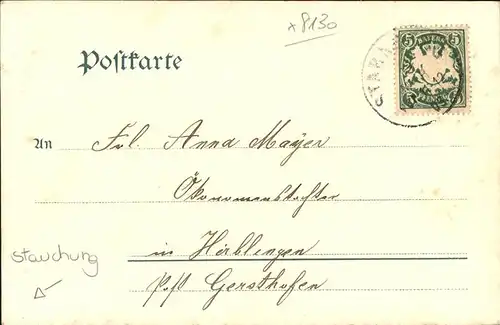 x 8130
Postkarte
5 BAYERN 5
STARN
An Frl. Anna Mayer
Ökonomenstochter
in Hirblingen
Post Gersthofen
Stauchung